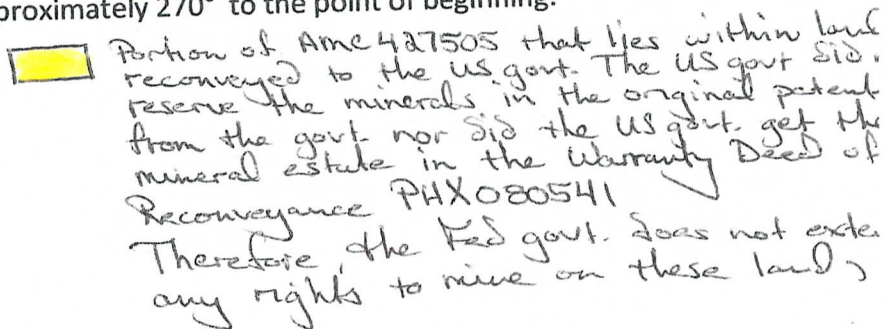 proximately 270° to the point of beginning.
Portion of AMC 427505 that lies within land
reconveyed to the US govt. The US govt did
reserve the minerals in the original patent
from the govt. nor did the US govt. get the
mineral estate in the Warranty Deed of
Reconveyance PHX080541
Therefore, the Fed govt. does not exte
any rights to mine on these lands